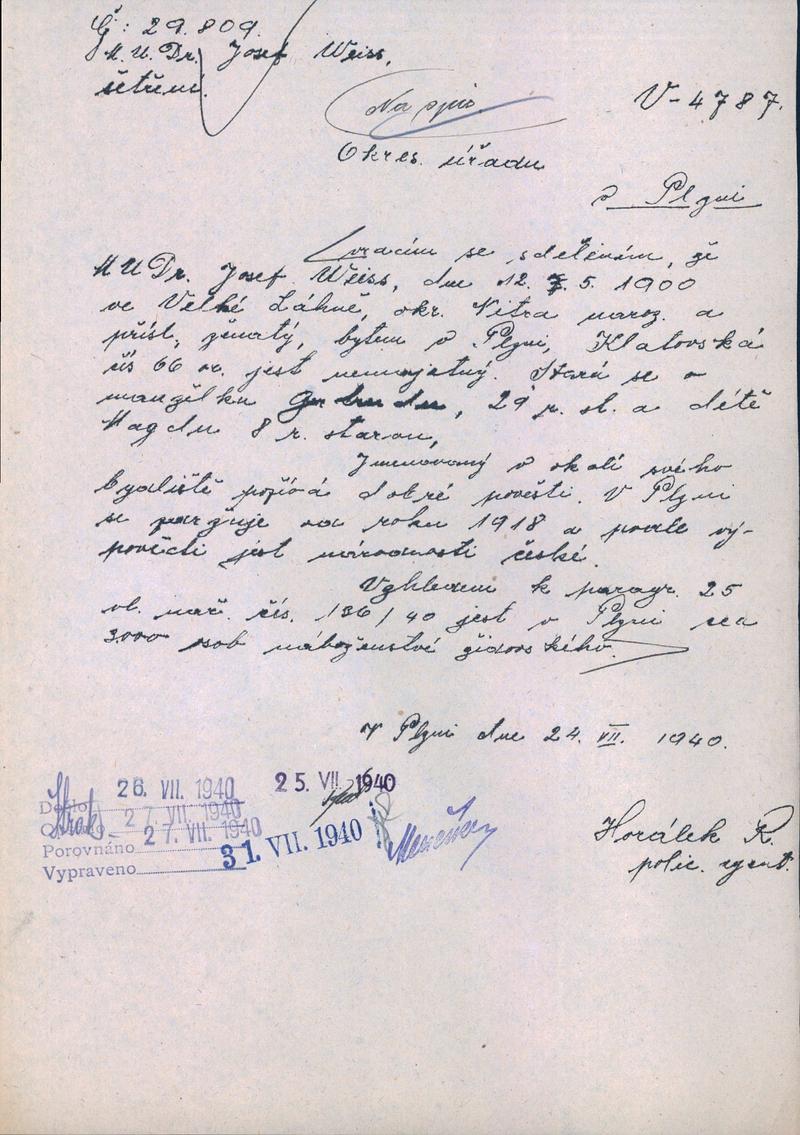 Č: 29.809.
M.U.Dr. Josef Weiss,
šetření.
Na spis
V-4787.
Okres. úřadu
v Plzni
vracím se sdělením, že
MUDr. Josef Weiss, dne 12. 5. 1900
ve Velké Láhně, okr. Nitra naroz. a
přísl., ženatý, bytem v Plzni, Klatovská
čís 66 jest nemajetný. Stará se o
manželku, 29 r. st. a dítě
Magdu 8 r. starou,
Jmenovaný v okolí svého
bydliště požívá dobré pověsti. V Plzni
se zdržuje od roku 1918 a podle vý-
povědi jest národnosti české.
Vzhledem k paragr. 25
vl. nař. čís. 136/40 jest v Plzni cca
3000 osob náboženství židovského.
V Plzni dne 24. VII. 1940.
26. VII. 1940
25. VII. 1940
Došlo
27. VII. 1940
Porovnáno 27. VII. 1940
Vypraveno 31. VII. 1940
Horálek R.
polic. agent.